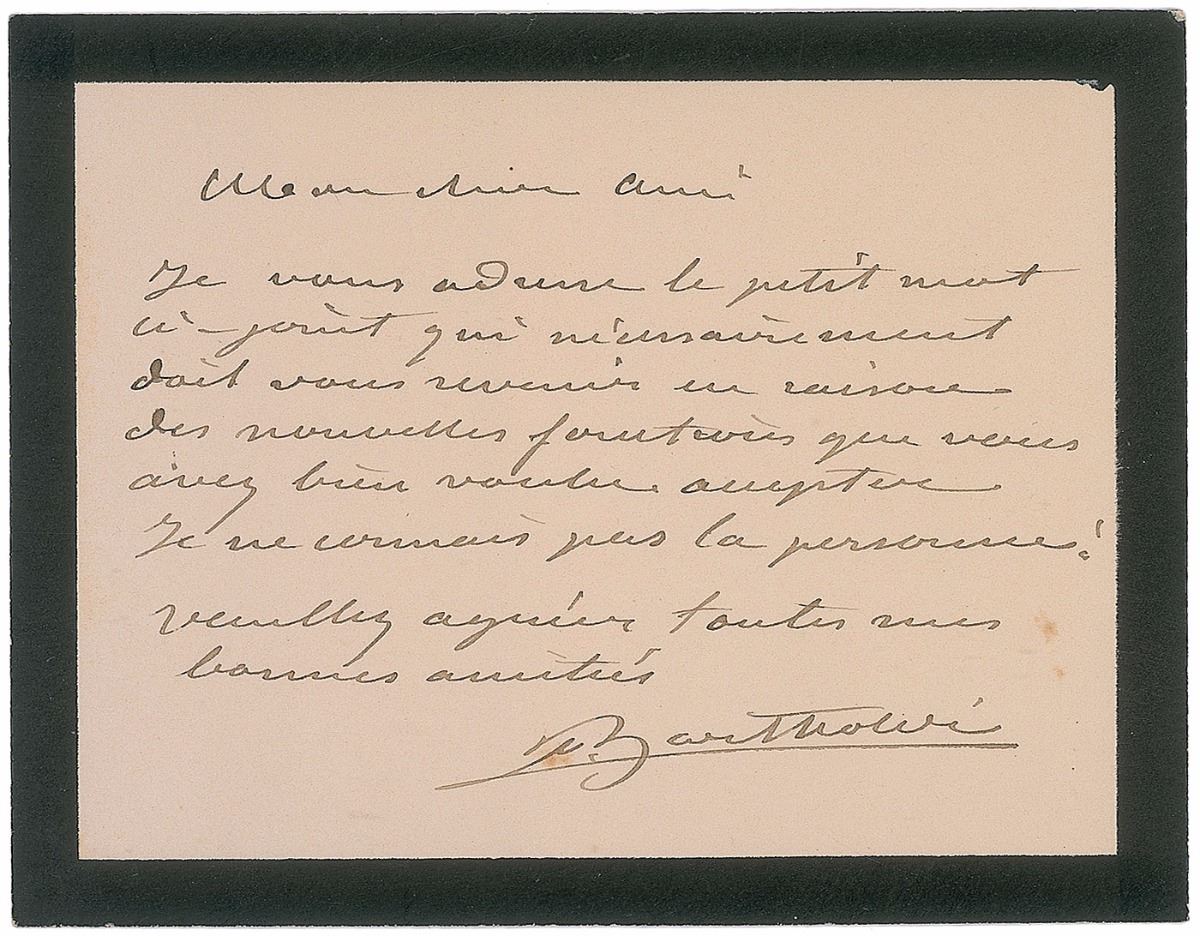 Mon cher Ami
Je vous adresse le petit mot
ci-joint qui nécessairement
doit vous revenir en raison
des nouvelles fonctions que vous
avez bien voulu accepter
Je ne connais pas la personne!
veuillez agréer toutes mes
bonnes amitiés
Bartholdi